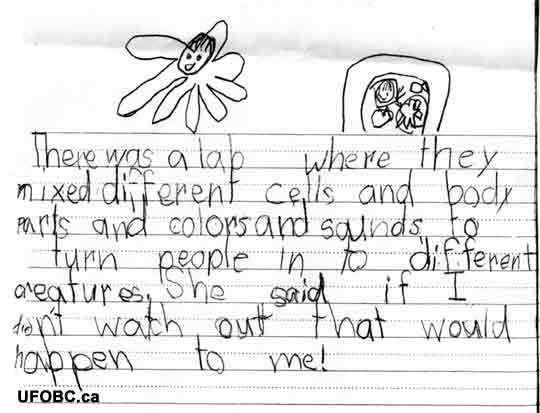 There was a lab where they
mixed different cells and body
parts and colors and sounds to
turn people in to different
creatures. She said if I
didn't watch out that would
happen to me!
UFOBC.ca